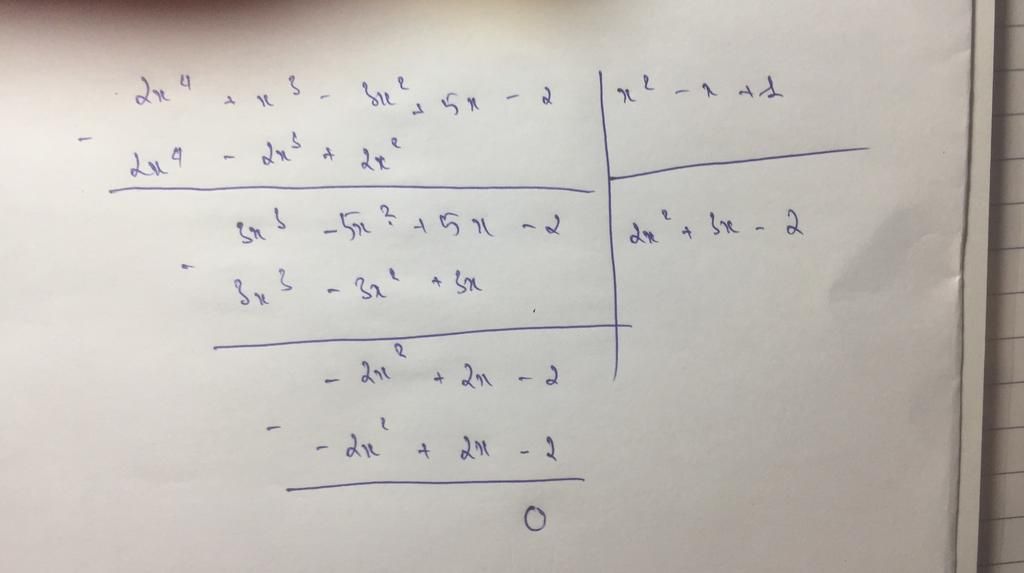 2x⁴ + x³ - 3x² + 5x - 2 | x² - x + 1
- 2x⁴ - 2x³ + 2x²
3x³ - 5x² + 5x - 2 | 2x² + 3x - 2
- 3x³ - 3x² + 3x
- 2x² + 2x - 2
- - 2x² + 2x - 2
0